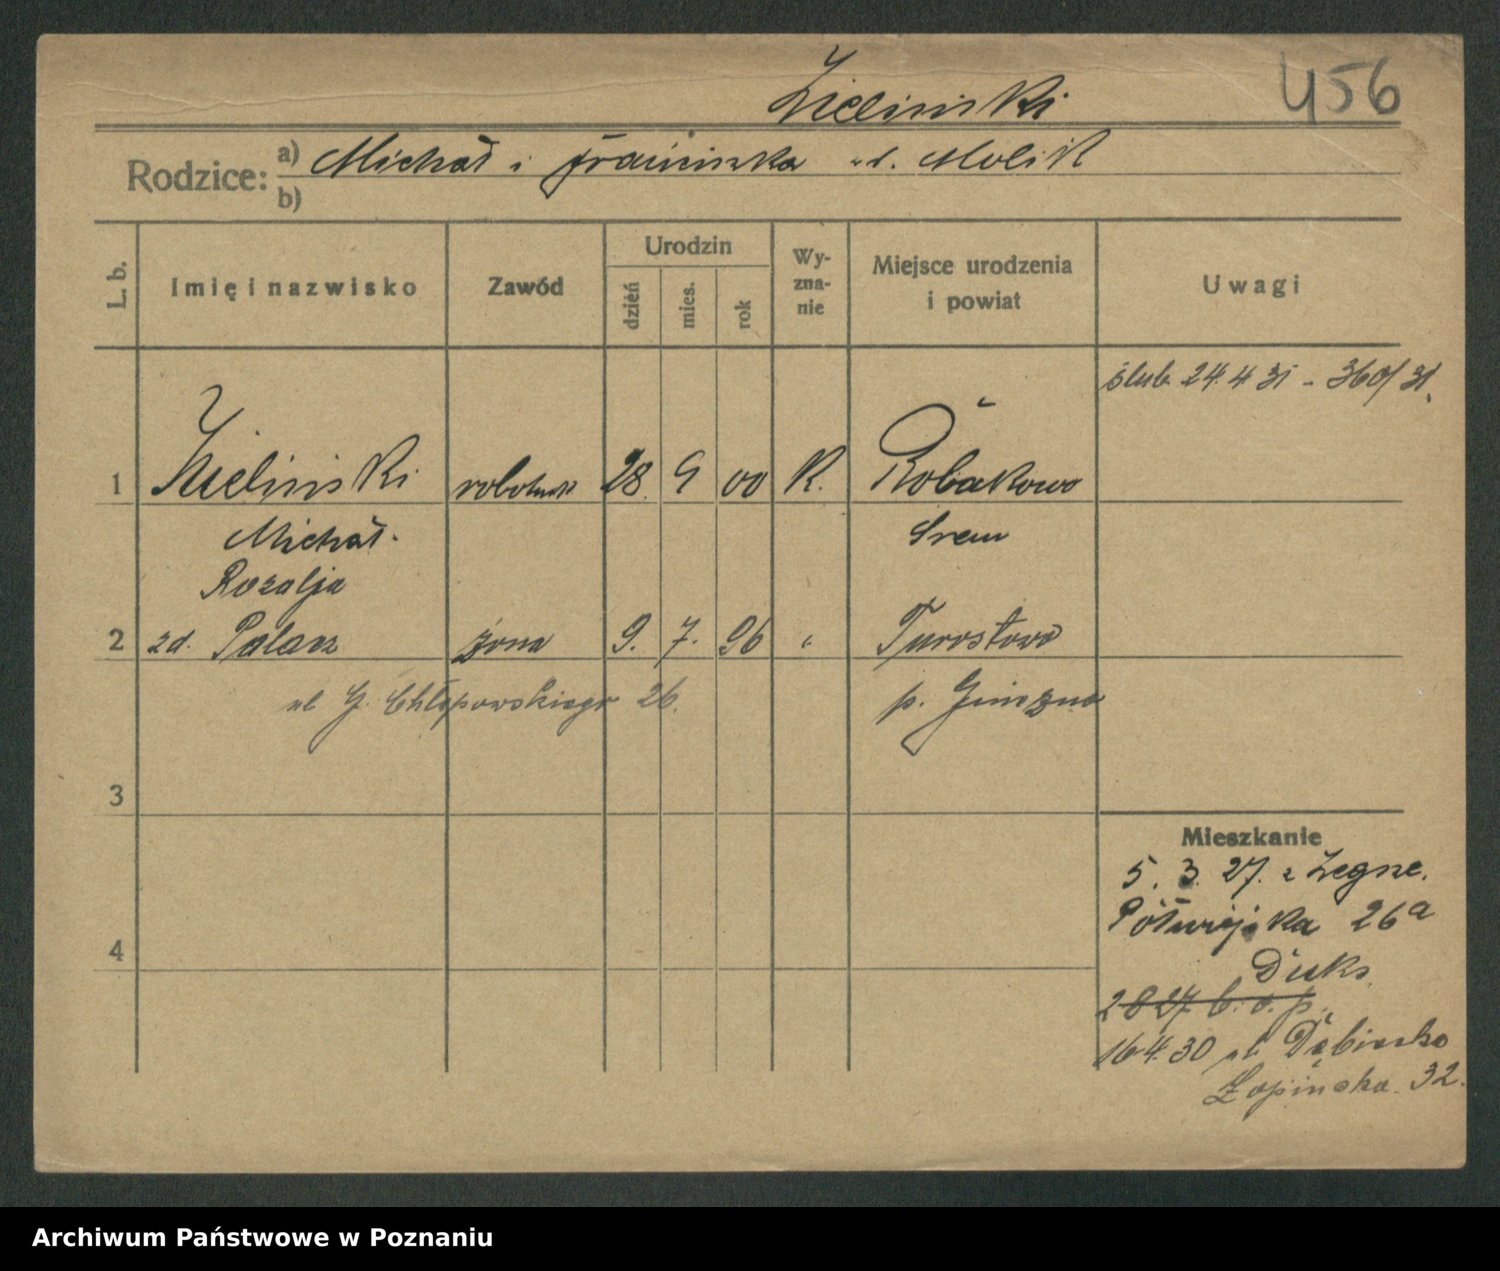 Zieliński 456
Rodzice: a) Michał i Franciszka z d. Molik
b)
L. b. Imię i nazwisko Zawód Urodzin dzień mies. rok Wyznanie Miejsce urodzenia i powiat Uwagi
ślub. 24.4 31 - 360/31.
1 Zieliński robotnik 28. 9 00 K. Robakowo
Michał. Śrem
Rozalja
2 zd. Palacz żona 9. 7. 96 " Turostowo
ul G. Chłapowskiego 26. p. Gniezno
3
Mieszkanie
5. 3. 27. z Żegrze.
Półwiejska 26a
4
Duks
16 4. 30 ul Dąbiesko
Łapińska 32.
Archiwum Państwowe w Poznaniu